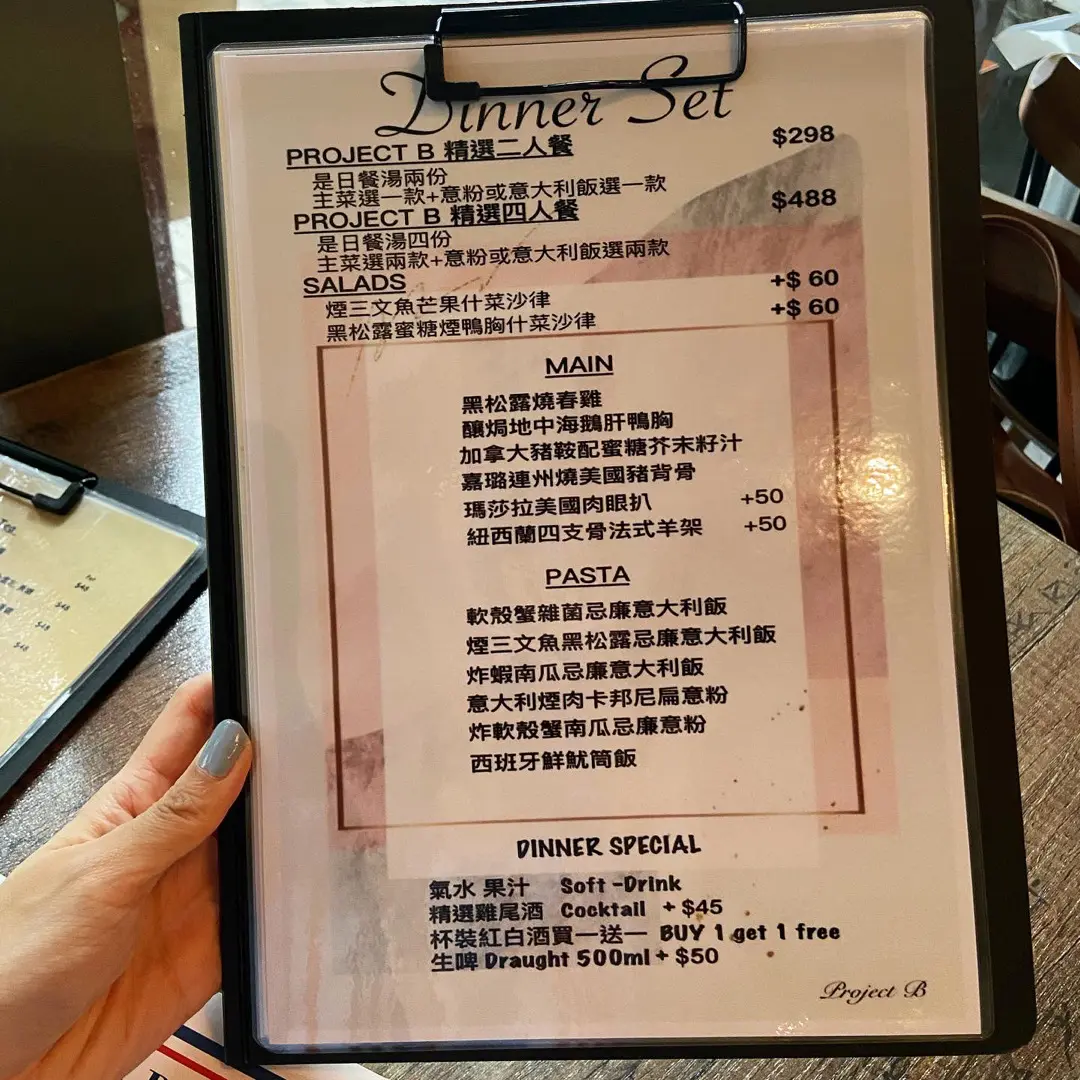 Dinner Set
PROJECT B 精選二人餐 $298
是日餐湯兩份
主菜選一款+意粉或意大利飯選一款
PROJECT B 精選四人餐 $488
是日餐湯四份
主菜選兩款+意粉或意大利飯選兩款
SALADS
煙三文魚芒果什菜沙律 +$ 60
黑松露蜜糖煙鴨胸什菜沙律 +$ 60
MAIN
黑松露燒春雞
釀焗地中海鵝肝鴨胸
加拿大豬鞍配蜜糖芥末籽汁
嘉璐連州燒美國豬背骨
瑪莎拉美國肉眼扒 +50
紐西蘭四支骨法式羊架 +50
PASTA
軟殼蟹雜菌忌廉意大利飯
煙三文魚黑松露忌廉意大利飯
炸蝦南瓜忌廉意大利飯
意大利煙肉卡邦尼扁意粉
炸軟殼蟹南瓜忌廉意粉
西班牙鮮魷筒飯
DINNER SPECIAL
氣水 果汁 Soft -Drink
精選雞尾酒 Cocktail + $45
杯裝紅白酒買一送一 BUY 1 get 1 free
生啤 Draught 500ml + $50
Project B
$48
$48
$48
$48